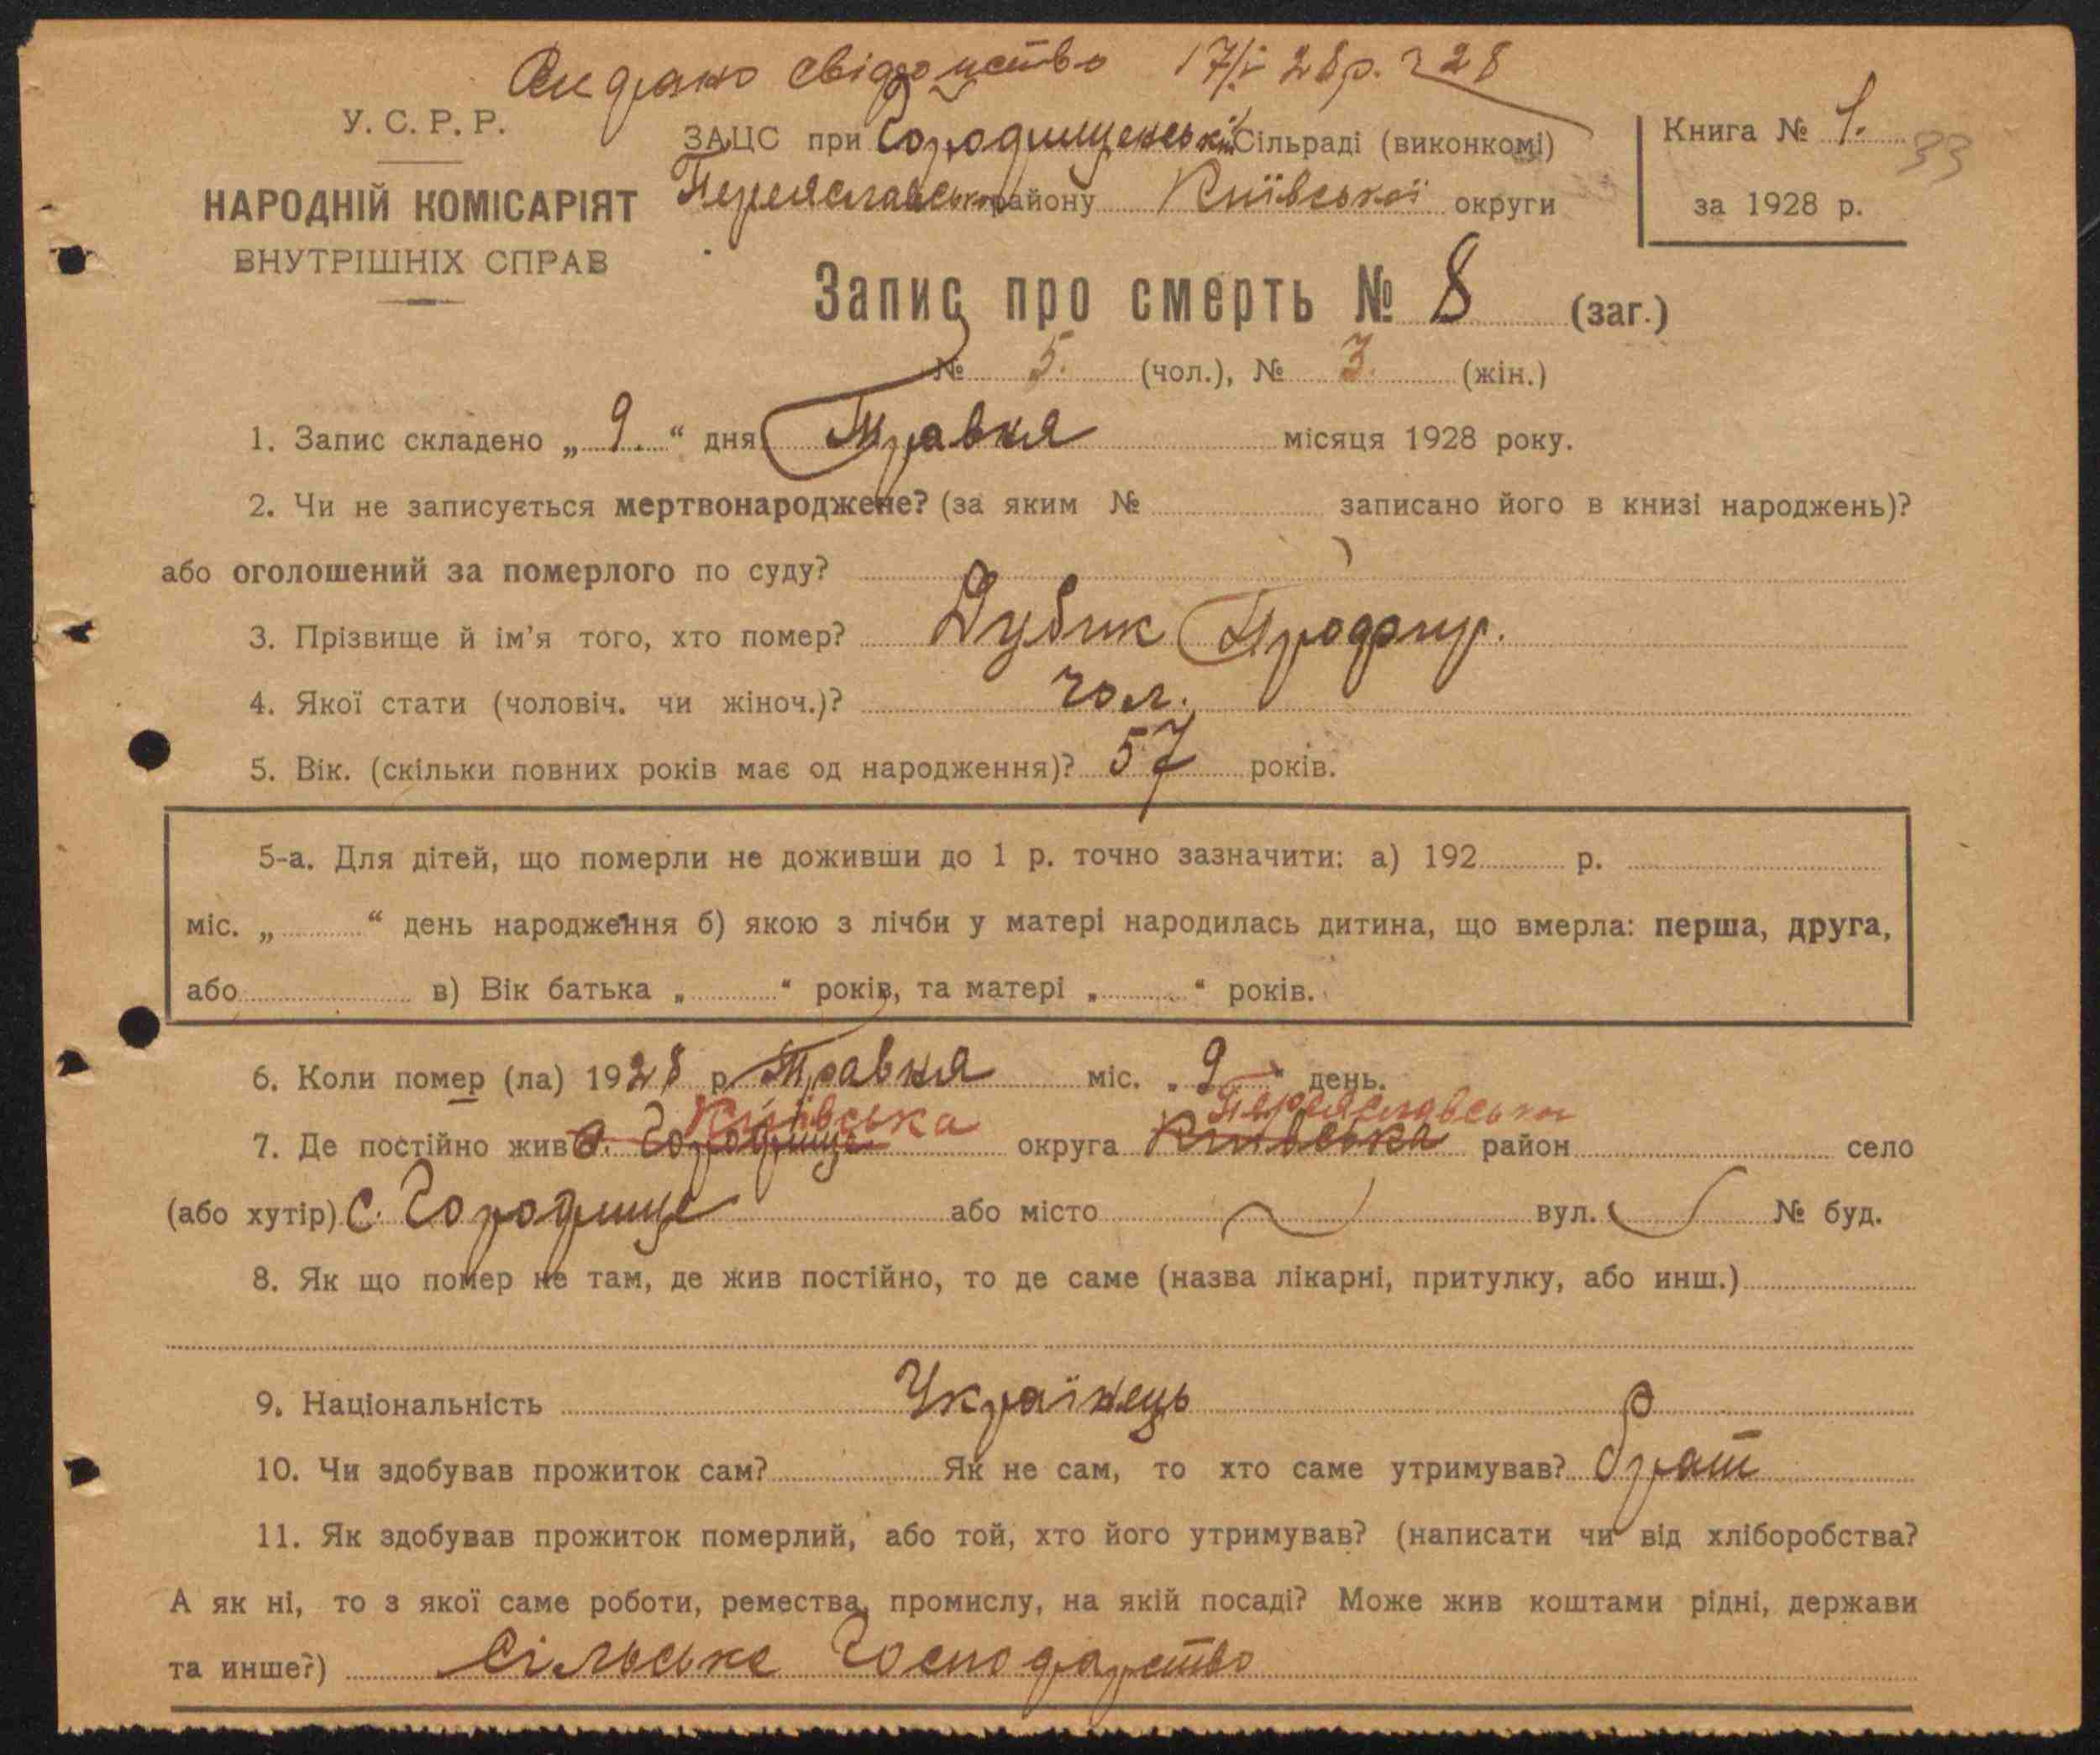 Видано свідоцтво 17/V 28 р. № 28
У. С. Р. Р.
НАРОДНІЙ КОМІСАРІЯТ
ВНУТРІШНІХ СПРАВ
ЗАЦС при Городищенській Сільраді (виконкомі)
Переяславськ району Київської округи
Книга № 1. 33
за 1928 р.
Запис про смерть № 8 (заг.)
№ 5. (чол.), № 3. (жін.)
1. Запис складено „ 9. “ дня Травня місяця 1928 року.
2. Чи не записується мертвонароджене? (за яким № записано його в книзі народжень)?
або оголошений за померлого по суду?
3. Прізвище й ім’я того, хто помер? Дубик
4. Якої стати (чоловіч. чи жіноч.)? чол.
5. Вік. (скільки повних років має од народження)? 57 років.
5-а. Для дітей, що померли не доживши до 1 р. точно зазначити: а) 192 р.
міс. „ “ день народження б) якою з лічби у матері народилась дитина, що вмерла: перша, друга,
або в) Вік батька „ “ років, та матері „ “ років.
6. Коли помер (ла) 1928 р. Травня міс. „ 9 “ день.
Київська Переяславськи
7. Де постійно жив с. Городище округа Київська район село
(або хутір) с. Городище або місто вул. № буд.
8. Як що помер не там, де жив постійно, то де саме (назва лікарні, притулку, або инш.)
9. Національність Українець
10. Чи здобував прожиток сам? Як не сам, то хто саме утримував? брат
11. Як здобував прожиток померлий, або той, хто його утримував? (написати чи від хліборобства?
А як ні, то з якої саме роботи, ремества, промислу, на якій посаді? Може жив коштами рідні, держави
та инше?) Сільське Господарство